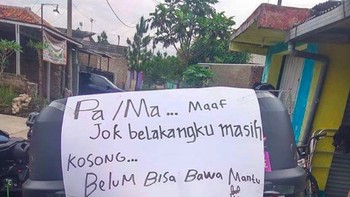 Pa /Ma... Maaf
Jok belakangku masih
KOSONG...
Belum Bisa Bawa Mantu